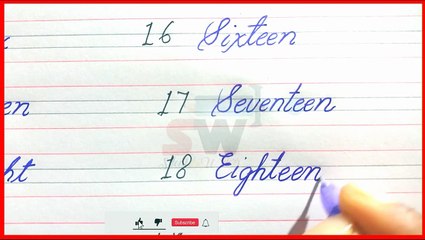 16 Sixteen
en 17 Seventeen
SW
ht 18 Eighteen
Subscribe